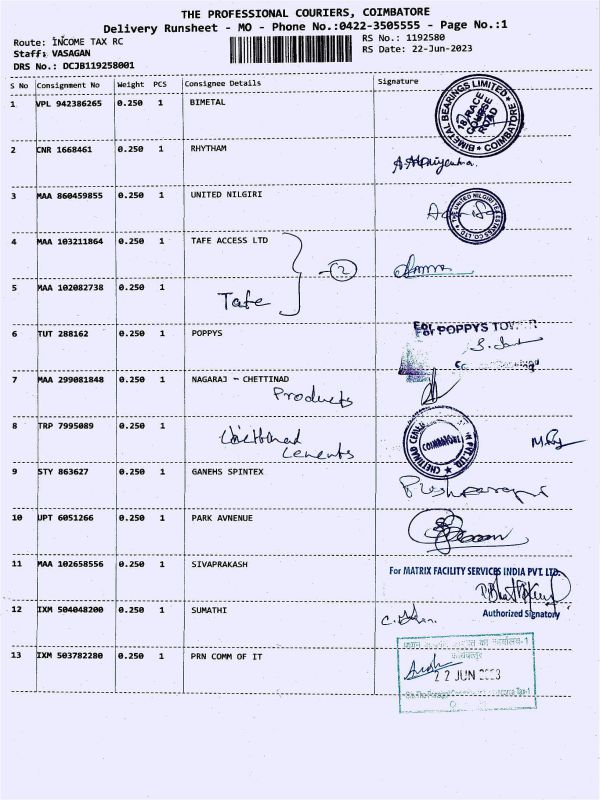 THE PROFESSIONAL COURIERS, COIMBATORE
Delivery Runsheet - MO - Phone No.:0422-3505555 - Page No.:1
Route: INCOME TAX RC
RS No.: 1192580
Staff: VASAGAN
RS Date: 22-Jun-2023
DRS No.: DCJB119258001
S No Consignment No Weight PCS Consignee Details Signature
1 VPL 942386265 0.250 1 BIMETAL
BIMETAL BEARINGS LIMITED
COIMBATORE
18, RACE
COURSE
ROAD
2 CNR 1668461 0.250 1 RHYTHAM
3 MAA 860459855 0.250 1 UNITED NILGIRI
4 MAA 103211864 0.250 1 TAFE ACCESS LTD
2
5 MAA 102082738 0.250 1
Tafe
6 TUT 288162 0.250 1 POPPYS
For POPPYS
7 MAA 299081848 0.250 1 NAGARAJ - CHETTINAD
Products
8 TRP 7995089 0.250 1
Chettinad
Cements
COIMBATORE
9 STY 863627 0.250 1 GANEHS SPINTEX
10 UPT 6051266 0.250 1 PARK AVNENUE
11 MAA 102658556 0.250 1 SIVAPRAKASH
For MATRIX FACILITY SERVICES INDIA PVT. LTD.
Authorized Signatory
12 IXM 504048200 0.250 1 SUMATHI
13 IXM 503782280 0.250 1 PRN COMM OF IT
22 JUN 2023